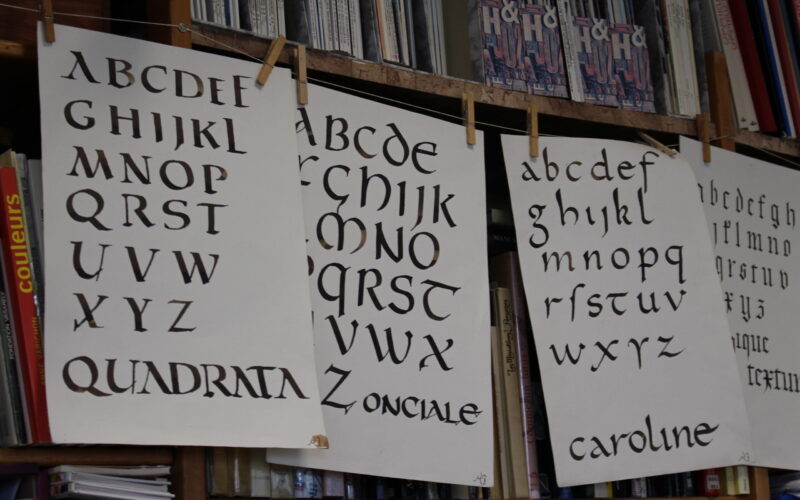 ABCDEF
GHIJKL
MNOP
QRST
UVW
XYZ
QUADRATA
ABCDE
GHIJK
MNO
PQRST
VWX
Z ONCIALE
abcdef
ghijkl
mnopq
rſstuv
wxyz
caroline
abcdefgh
ijklmno
qrstuv
xyz
couleurs
H&
H&